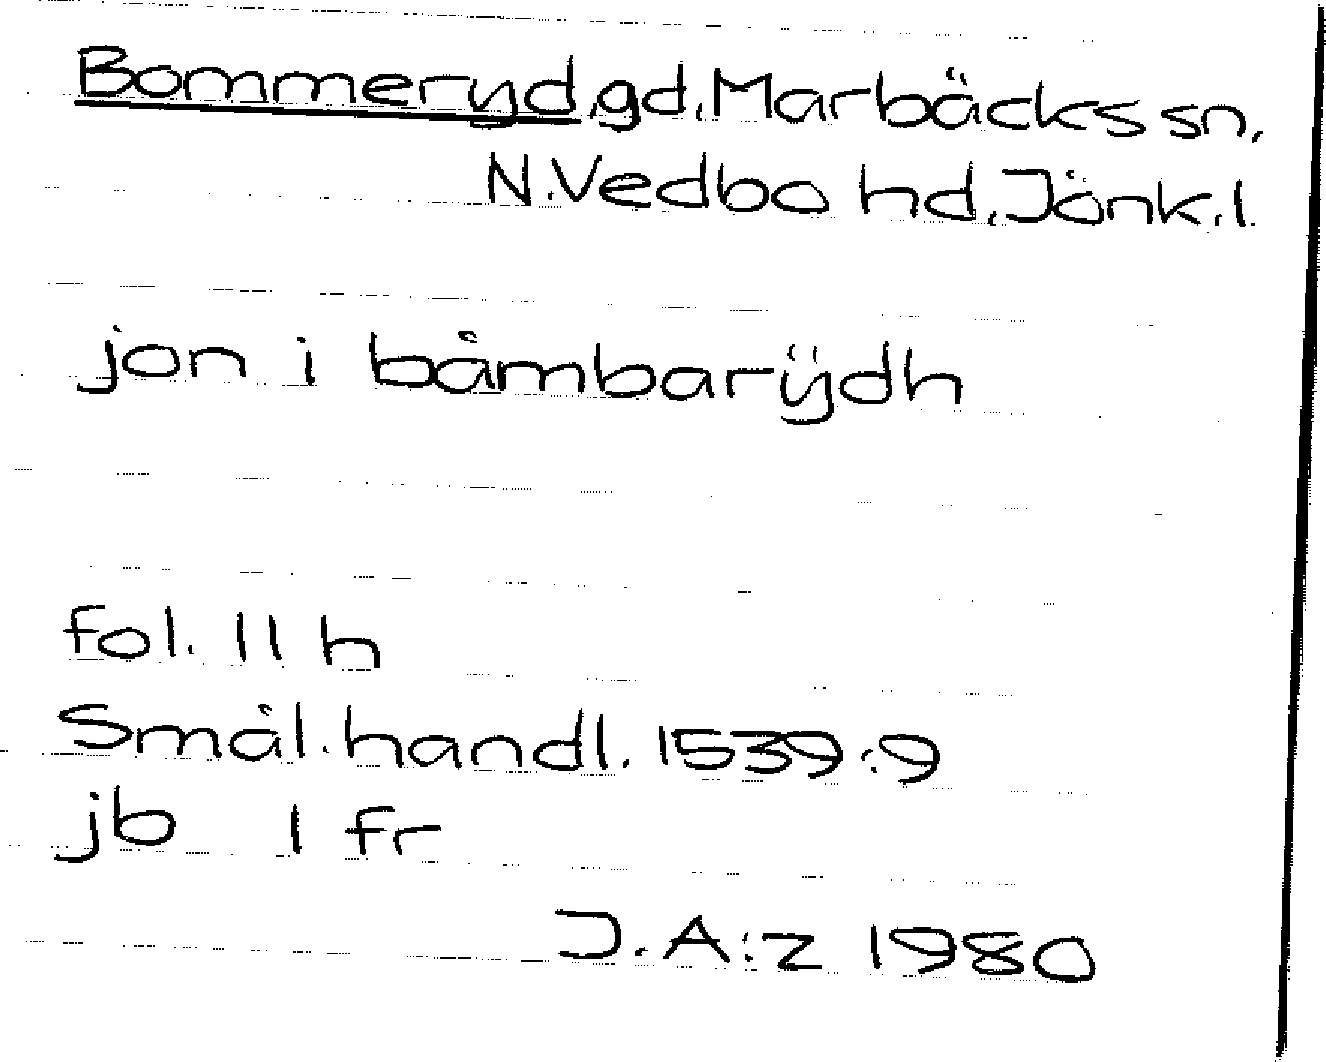 Bommeryd, gd, Marbäcks sn,
N. Vedbo hd, Jönk. l.
jon i båmbarÿdh
fol. 11 h
Smål. handl. 1539:9
jb 1 fr
J.A:z 1980